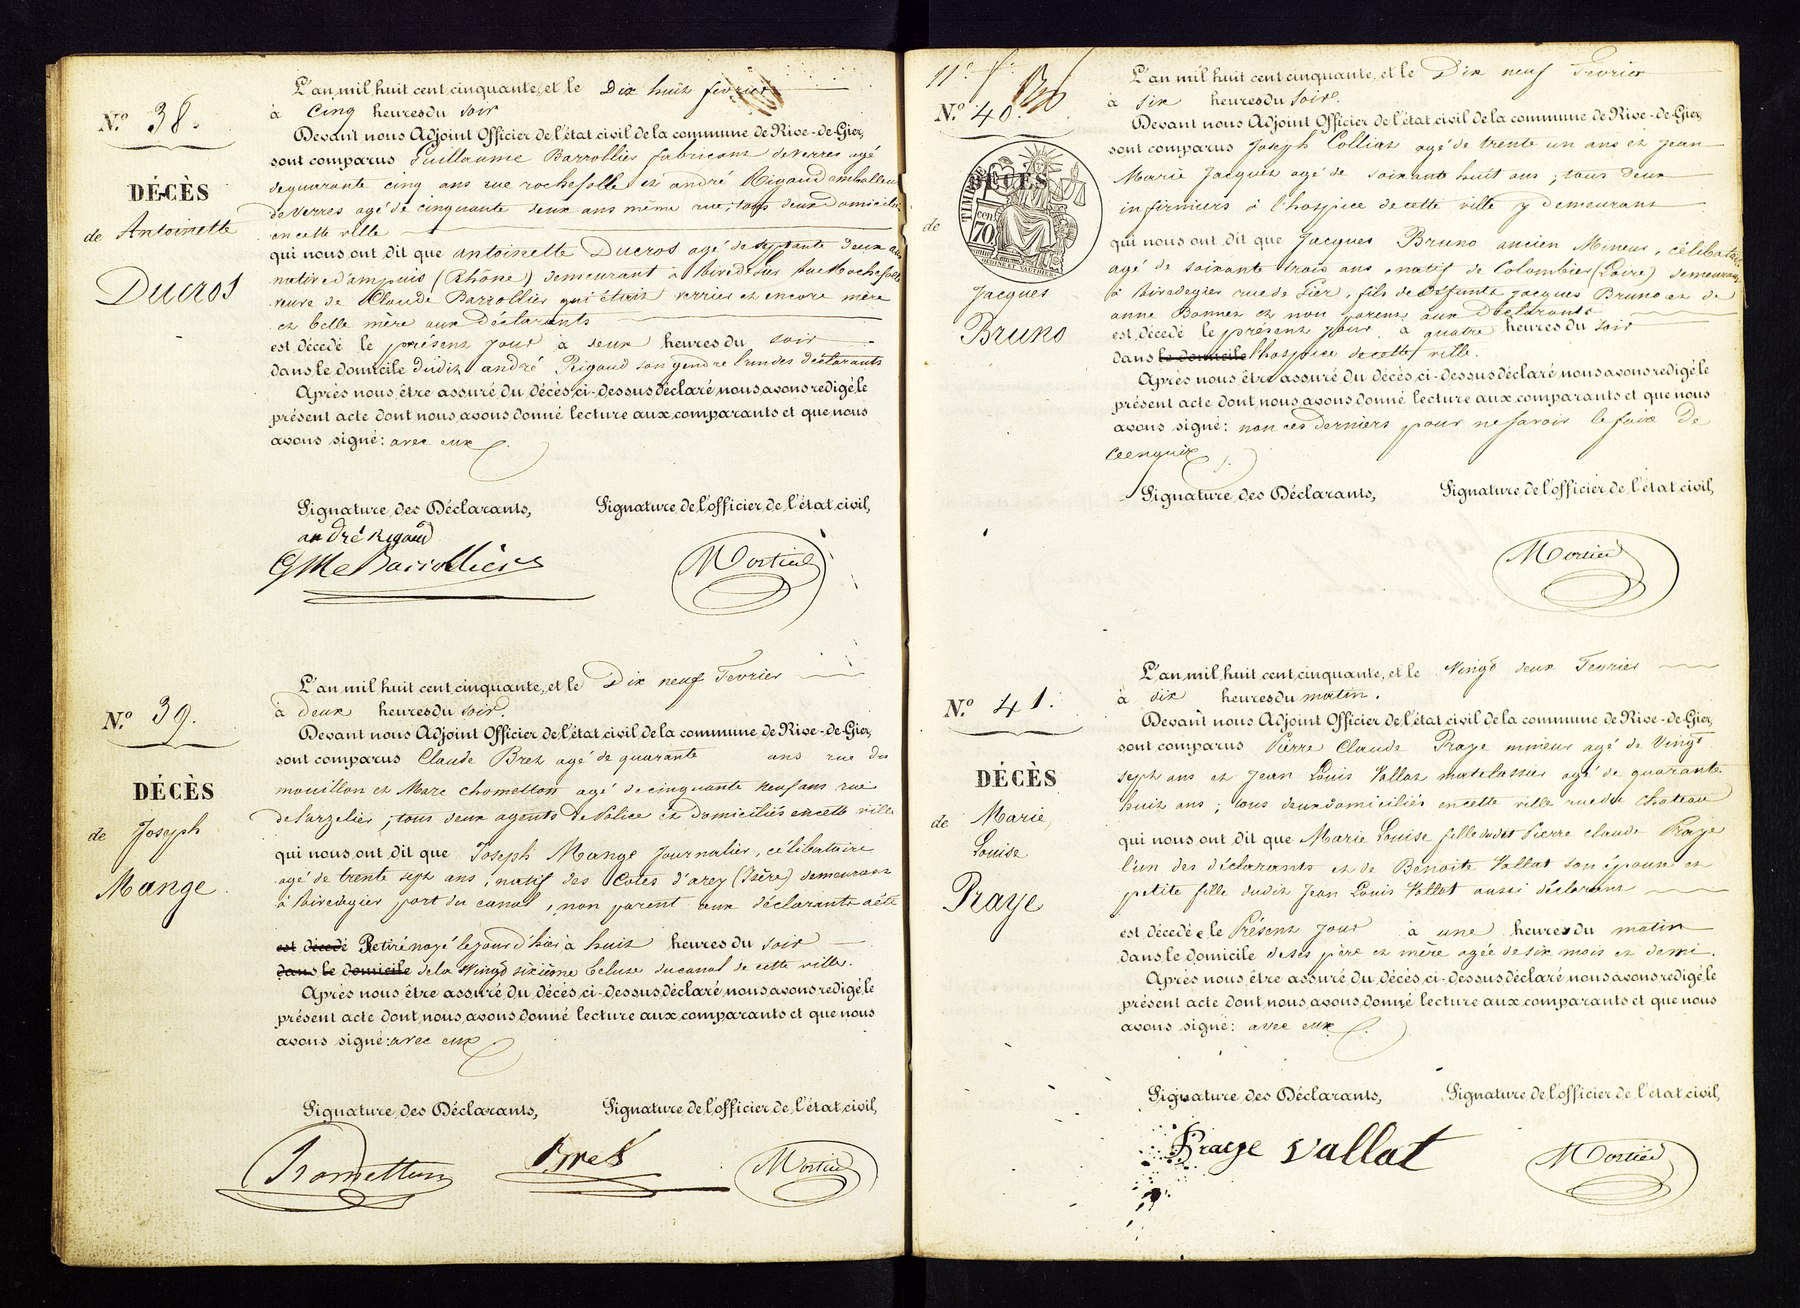 N.º 38.
DÉCÈS
de Antoinette
Ducros
L'an mil huit cent cinquante, et le Dix huit février
à Cinq heures du soir
Devant nous Adjoint Officier de l'état civil de la commune de Rive-de-Gier,
sont comparus Guillaume Barrollier fabricant de verres agé
de quarante cinq ans rue rochefolle et andré Rigaud emballeur
de verres agé de cinquante deux ans même rue, tous deux domiciliés
en cette ville
qui nous ont dit que antoinette Ducros agé de septante deux ans
native d'ampuis (Rhône) demeurant à Rivedegier Rue Rochefolle
veuve de Claude Barrollier qui était verrier et encore mère
et belle mère aux Déclarants
est décédé le présent jour à deux heures du soir
dans le domicile dudit andré Rigaud son gendre l'un des déclarants
Après nous être assuré du décès ci-dessus déclaré nous avons redigé le
présent acte dont nous avons donné lecture aux comparants et que nous
avons signé: avec eux
Signature des Déclarants, Signature de l'officier de l'état civil,
andré Rigaud
Gme Barrollier Mortier
N.º 39.
DÉCÈS
de Joseph
Mange
L'an mil huit cent cinquante, et le Dix neuf Fevrier
à deux heures du soir.
Devant nous Adjoint Officier de l'état civil de la commune de Rive-de-Gier,
sont comparus Claude Bret agé de quarante ans rue du
mouillon et Marc chometton agé de cinquante neuf ans rue
de tous deux agents de Police et domiciliés en cette ville
qui nous ont dit que Joseph Mange Journalier, célibataire
agé de trente sept ans, natif des Cotes d'arey (Isère) demeurant
à Rivedegier port du canal, non parent aux déclarants a été
est décedé Retiré noyé le jour d'hier à huit heures du soir
dans le domicile de la vingt sixième Ecluse du canal de cette ville.
Après nous être assuré du décès ci-dessus déclaré nous avons redigé le
présent acte dont nous avons donné lecture aux comparants et que nous
avons signé: avec eux
Signature des Déclarants, Signature de l'officier de l'état civil,
Chometton Bret Mortier
11e f.
N.º 40.
DÉCÈS
TIMBRE
70 cen
de
Jacques
Bruno
L'an mil huit cent cinquante, et le Dix neuf Fevrier
à six heures du soir.
Devant nous Adjoint Officier de l'état civil de la commune de Rive-de-Gier,
sont comparus Joseph Colliat agé de trente un ans et Jean
Marie Jacquet agé de soixante huit ans; tous deux
infirmiers à l'hospice de cette ville y demeurant
qui nous ont dit que Jacques Bruno ancien Mineur, célibataire
agé de soixante trois ans, natif de Colombier (Loire) demeurant
à Rivedegier rue de Fier, fils de defunts Jacques Bruno et de
anne Bonnet et non parent aux Déclarants
est décedé le présent jour à quatre heures du soir
dans le domicile l'hospice de cette ville.
Après nous être assuré du décès ci-dessus déclaré nous avons redigé le
présent acte dont nous avons donné lecture aux comparants et que nous
avons signé: non ces derniers pour ne savoir le faire de
ce enquis
Signature des Déclarants, Signature de l'officier de l'état civil,
Mortier
N.º 41.
DÉCÈS
de Marie
Louise
Praye
L'an mil huit cent cinquante, et le Vingt deux Fevrier
à dix heures du matin.
Devant nous Adjoint Officier de l'état civil de la commune de Rive-de-Gier,
sont comparus Pierre Claude Praye mineur agé de vingt
sept ans et Jean Louis Vallat matelassier agé de quarante
huit ans; tous deux domiciliés en cette ville rue du Chateau
qui nous ont dit que Marie Louise fille dudit Pierre claude Praye
l'un des déclarants et de Benoite Vallat son épouse et
petite fille dudit Jean Louis Vallat aussi déclarant
est décédée le Présent jour à une heures du matin
dans le domicile de ses père et mère agée de six mois et demi.
Après nous être assuré du décès ci-dessus déclaré nous avons redigé le
présent acte dont nous avons donné lecture aux comparants et que nous
avons signé: avec eux
Signature des Déclarants, Signature de l'officier de l'état civil,
Praye Vallat Mortier